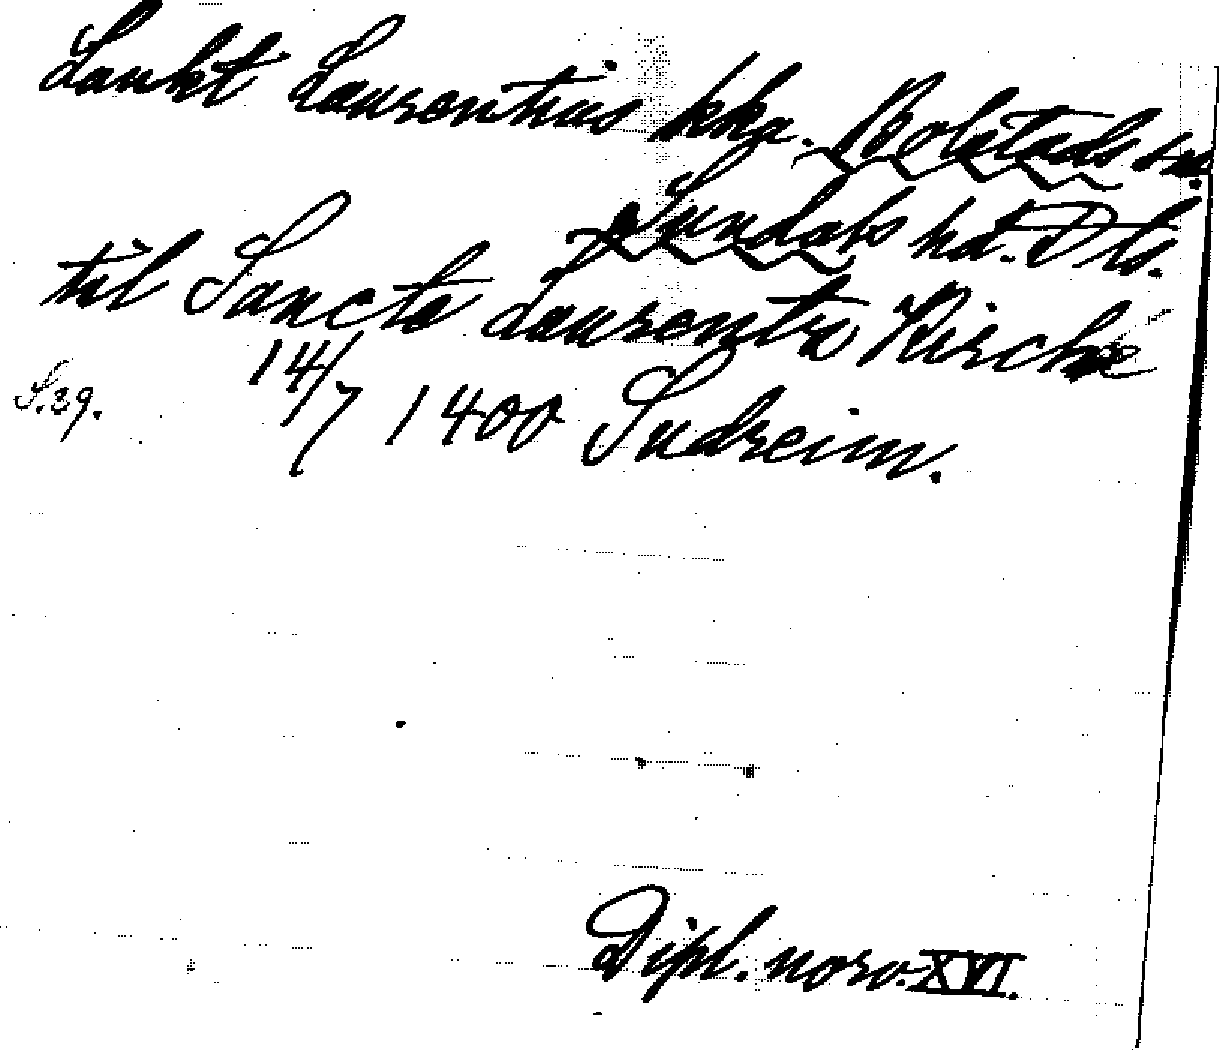 Sankt Laurentius kka. Bolstads sn.
Sundals hd. Dls.
til Sancte Laurentz Kirche
S.39. 14/7 1400 Sudreim.
Dipl. norv. XVI.